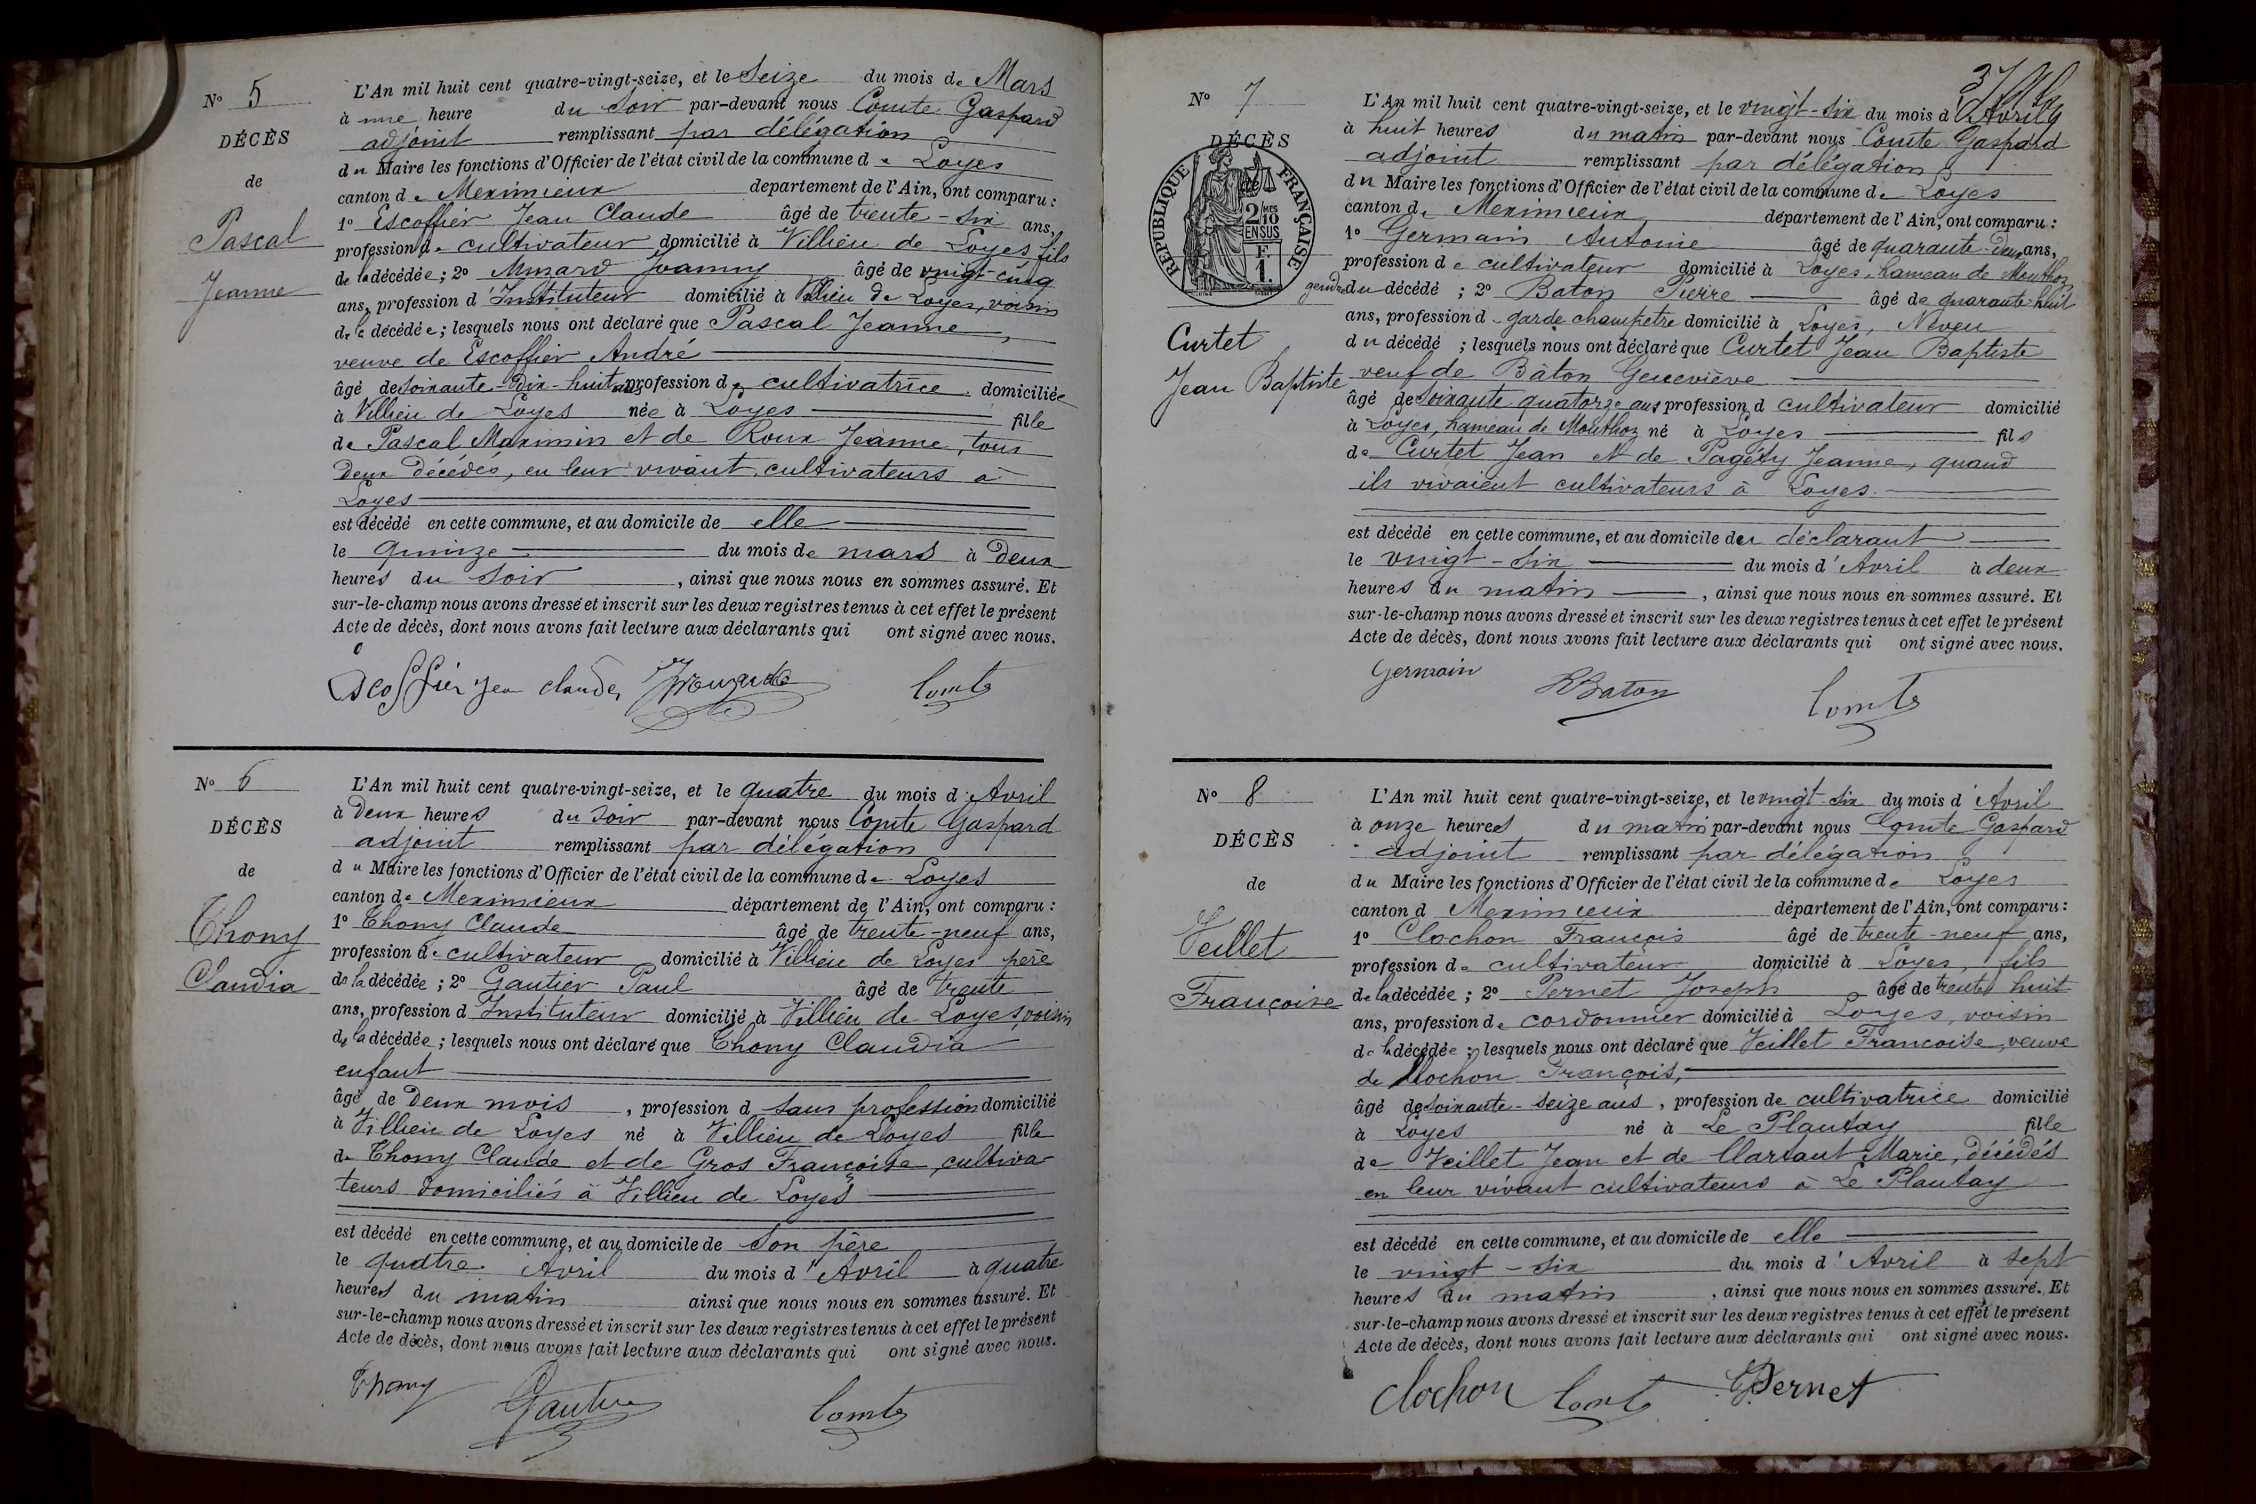 N° 5
DÉCÈS
de
Pascal
Jeanne
L'An mil huit cent quatre-vingt-seize, et le Seize du mois de Mars
à une heure du soir par-devant nous Comte Gaspard
adjoint remplissant par délégation
du Maire les fonctions d'Officier de l'état civil de la commune de Loyes
canton de Meximieux département de l'Ain, ont comparu :
1° Escoffier Jean Claude âgé de trente-six ans,
profession de cultivateur domicilié à Villieu de Loyes, fils
de la décédée ; 2° Muzard Joanny âgé de vingt-cinq
ans, profession d'Instituteur domicilié à Villieu de Loyes, voisin
de la décédée ; lesquels nous ont déclaré que Pascal Jeanne,
veuve de Escoffier André
âgé de soixante-dix-huit ans, profession de cultivatrice domiciliée
à Villieu de Loyes née à Loyes fille
de Pascal Maximin et de Roux Jeanne, tous
deux décédés, en leur vivant cultivateurs à
Loyes
est décédé en cette commune, et au domicile de elle
le quinze du mois de mars à deux
heures du soir, ainsi que nous nous en sommes assuré. Et
sur-le-champ nous avons dressé et inscrit sur les deux registres tenus à cet effet le présent
Acte de décès, dont nous avons fait lecture aux déclarants qui ont signé avec nous.
Escoffier Jean claude Muzard Comte
N° 6
DÉCÈS
de
Thony
Claudia
L'An mil huit cent quatre-vingt-seize, et le quatre du mois d'Avril
à deux heures du soir par-devant nous Comte Gaspard
adjoint remplissant par délégation
du Maire les fonctions d'Officier de l'état civil de la commune de Loyes
canton de Meximieux département de l'Ain, ont comparu :
1° Thony Claude âgé de trente-neuf ans,
profession de cultivateur domicilié à Villieu de Loyes père
de la décédée ; 2° Gautier Paul âgé de trente
ans, profession d'Instituteur domicilié à Villieu de Loyes, voisin
de la décédée ; lesquels nous ont déclaré que Thony Claudia
enfant
âgé de deux mois, profession d sans profession domicilié
à Villieu de Loyes né à Villieu de Loyes fille
de Thony Claude et de Gros Françoise, cultiva-
teurs domiciliés à Villieu de Loyes
est décédé en cette commune, et au domicile de son père
le quatre Avril du mois d'Avril à quatre
heures du matin ainsi que nous nous en sommes assuré. Et
sur-le-champ nous avons dressé et inscrit sur les deux registres tenus à cet effet le présent
Acte de décès, dont nous avons fait lecture aux déclarants qui ont signé avec nous.
Thony Gautier Comte
N° 7
DÉCÈS
de
RÉPUBLIQUE FRANÇAISE
2/10
MES
EN SUS
F.
1.
Curtet
Jean Baptiste
L'An mil huit cent quatre-vingt-seize, et le vingt-six du mois d'Avril
à huit heures du matin par-devant nous Comte Gaspard
adjoint remplissant par délégation
du Maire les fonctions d'Officier de l'état civil de la commune de Loyes
canton de Meximieux département de l'Ain, ont comparu :
1° Germain Antoine âgé de quarante-deux ans,
profession de cultivateur domicilié à Loyes, hameau de Monthoz
gendre du décédé ; 2° Baton Pierre âgé de quarante-huit
ans, profession d garde champêtre domicilié à Loyes, Neveu
du décédé ; lesquels nous ont déclaré que Curtet Jean Baptiste
veuf de Bâton Geneviève
âgé de soixante quatorze ans profession d cultivateur domicilié
à Loyes, hameau de Monthoz né à Loyes fils
de Curtet Jean et de Pagéty Jeanne, quand
ils vivaient cultivateurs à Loyes.
est décédé en cette commune, et au domicile du déclarant
le vingt-six du mois d'Avril à deux
heures du matin, ainsi que nous nous en sommes assuré. Et
sur-le-champ nous avons dressé et inscrit sur les deux registres tenus à cet effet le présent
Acte de décès, dont nous avons fait lecture aux déclarants qui ont signé avec nous.
Germain Baton Comte
N° 8
DÉCÈS
de
Veillet
Françoise
L'An mil huit cent quatre-vingt-seize, et le vingt-six du mois d'Avril
à onze heures du matin par-devant nous Comte Gaspard
adjoint remplissant par délégation
du Maire les fonctions d'Officier de l'état civil de la commune de Loyes
canton d Meximieux département de l'Ain, ont comparu :
1° Clochon François âgé de trente-neuf ans,
profession de cultivateur domicilié à Loyes, fils
de la décédée ; 2° Pernet Joseph âgé de trente huit
ans, profession de cordonnier domicilié à Loyes, voisin
de la décédée ; lesquels nous ont déclaré que Veillet Francoise, veuve
de Clochon François,
âgé de soixante-seize ans, profession de cultivatrice domicilié
à Loyes né à Le Plantay fille
de Veillet Jean et de Marie, décédés
en leur vivant cultivateurs à Le Plantay
est décédé en cette commune, et au domicile de elle
le vingt-six du mois d'Avril à sept
heures du matin, ainsi que nous nous en sommes assuré. Et
sur-le-champ nous avons dressé et inscrit sur les deux registres tenus à cet effet le présent
Acte de décès, dont nous avons fait lecture aux déclarants qui ont signé avec nous.
Clochon Comte Pernet